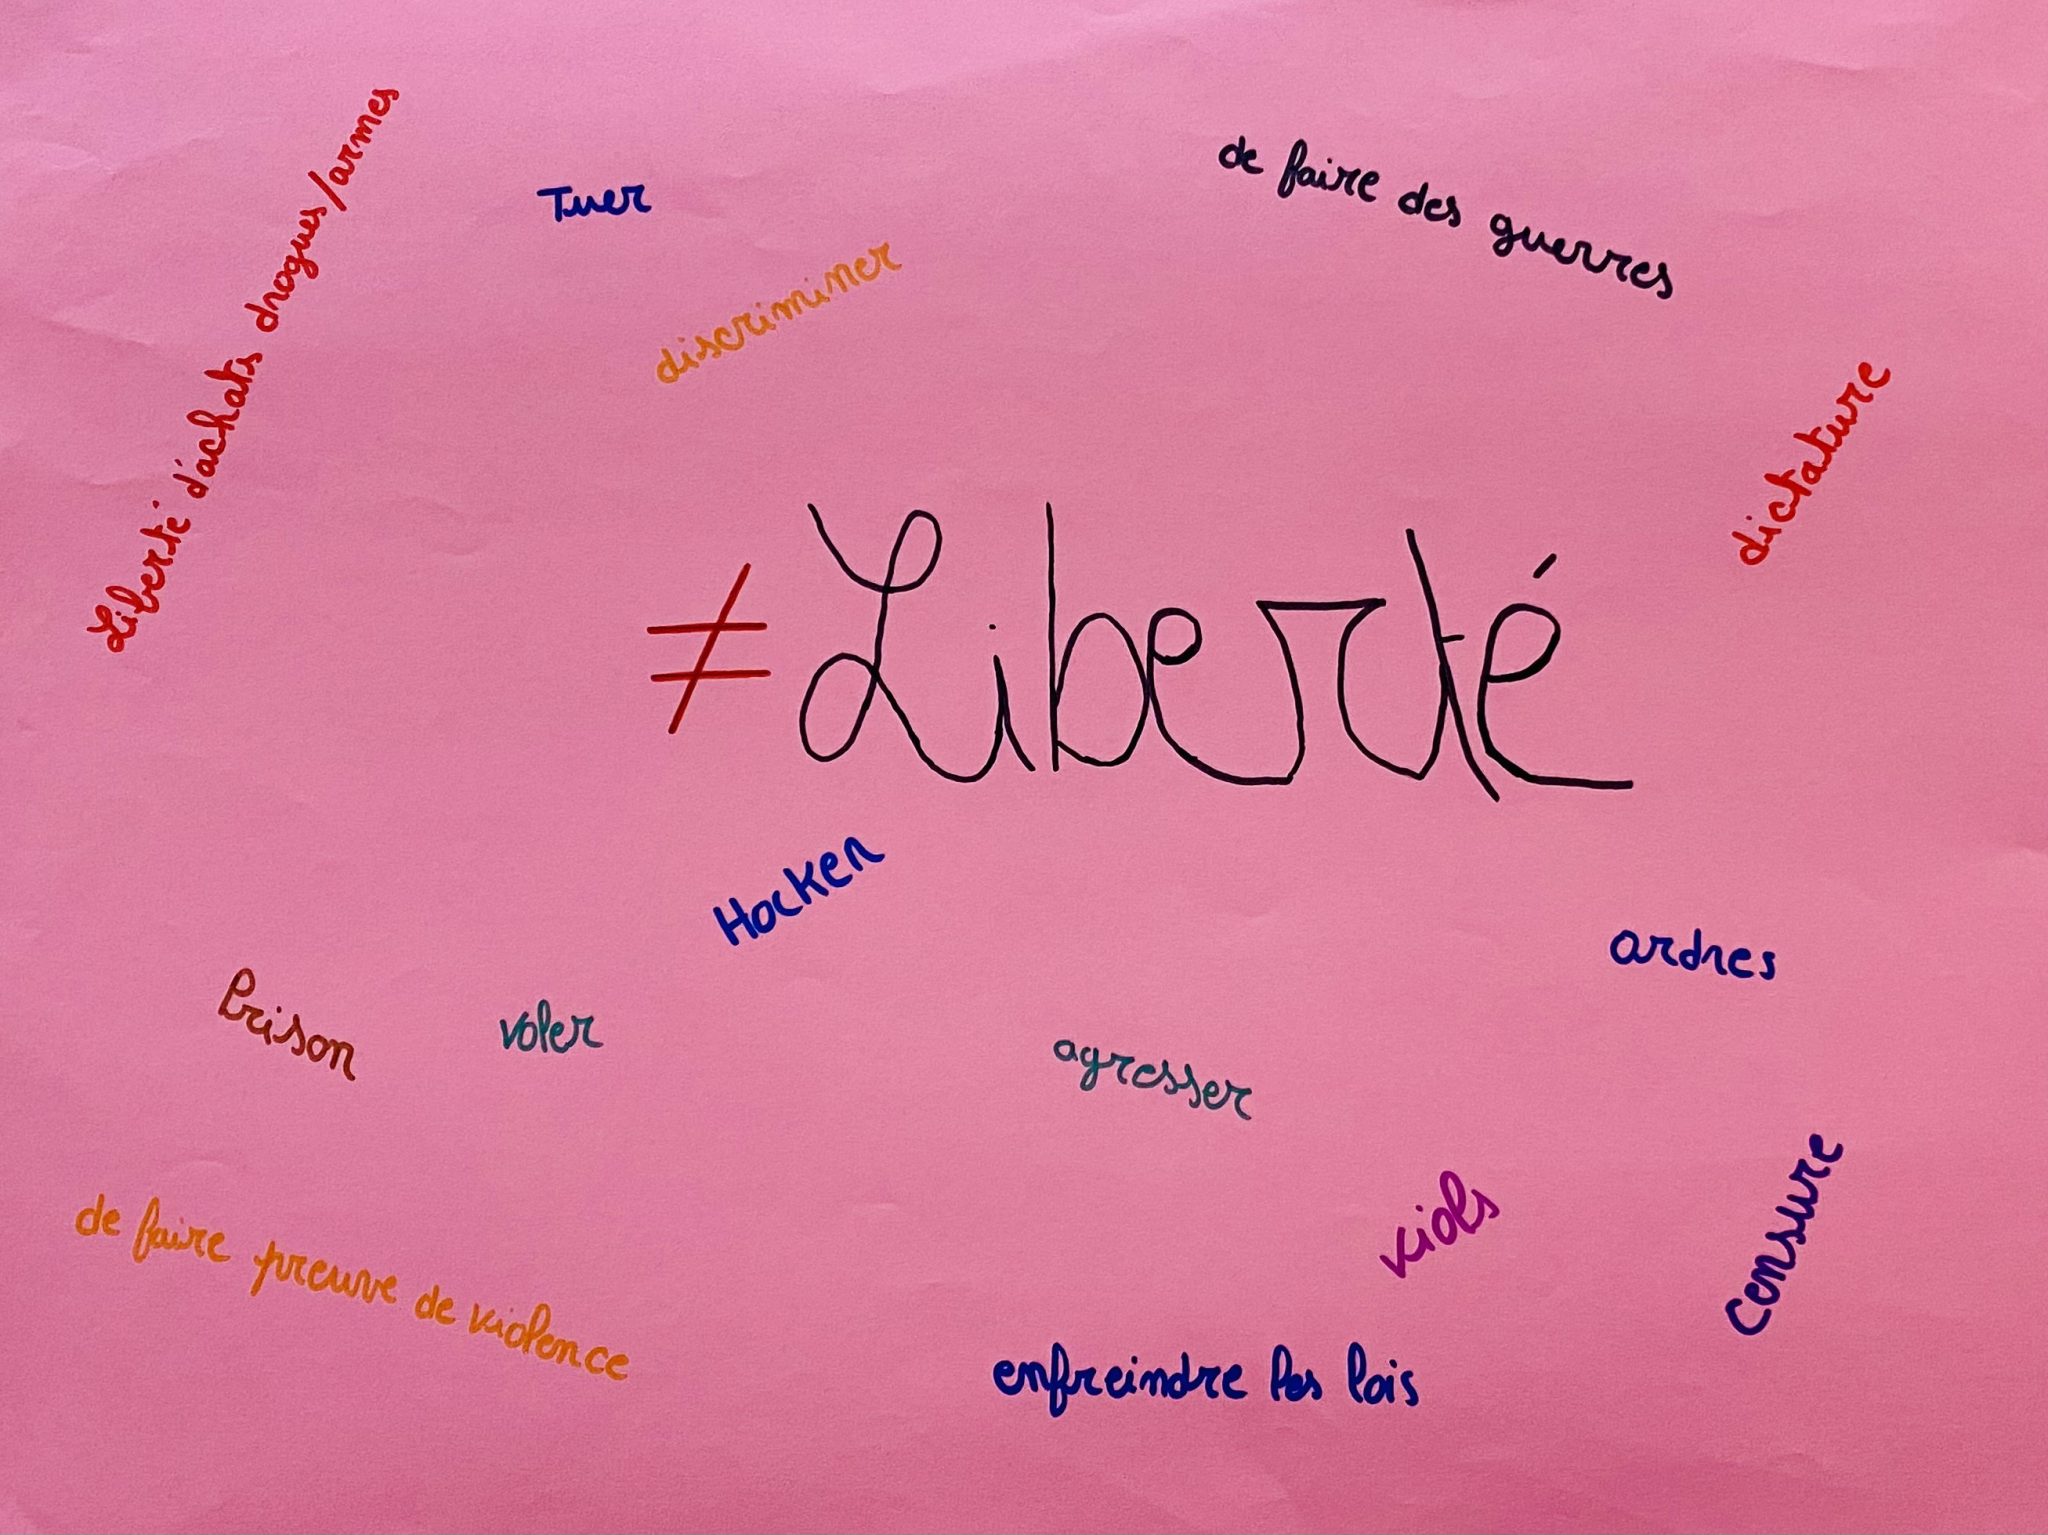 Liberté d'achats drogues/armes
Tuer
de faire des guerres
discriminer
dictature
≠ Liberté
Hacker
ordres
Prison
voler
agresser
viols
censure
de faire preuve de violence
enfreindre les lois